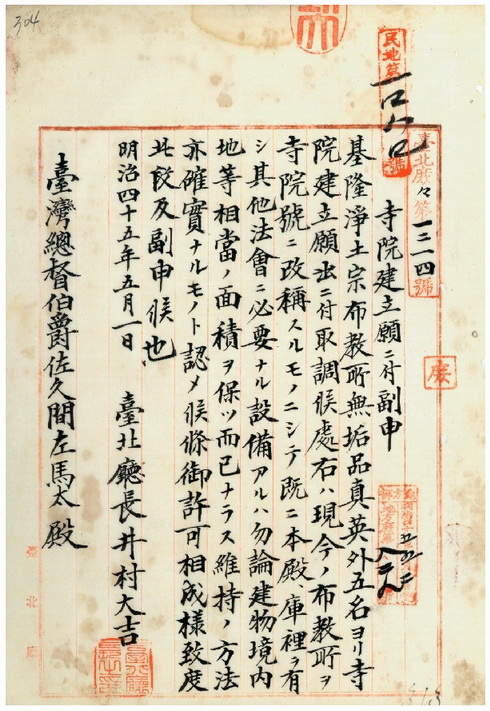 304
民地第一〇八〇號
臺北廳庶第一三一四號
寺院建立願ニ付副申
基隆淨土宗布教所無垢品真英外五名ヨリ寺
院建立願出ニ付取調候處右ハ現今ノ布教所ヲ
寺院號ニ改稱スルモノニシテ既ニ本殿庫裡ヲ有
シ其他法會ニ必要ナル設備アルハ勿論建物境内
地等相當ノ面積ヲ保ツ而已ナラス維持ノ方法
亦確實ナルモノト認メ候條御許可相成樣致度
此段及副申候也
明治四十五年五月一日
臺北廳長井村大吉
臺灣總督伯爵佐久間左馬太殿
臺北廳